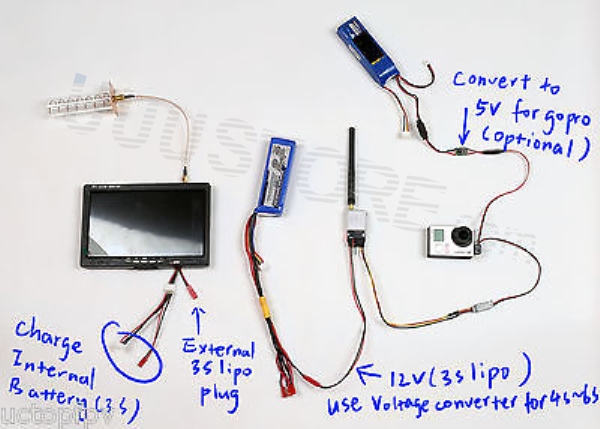 Convert to
5V for gopro
(optional)
Charge
Internal
Battery (3s)
External
3s lipo
plug
12V (3s lipo)
use Voltage converter for 4s~6s
uctoprpv